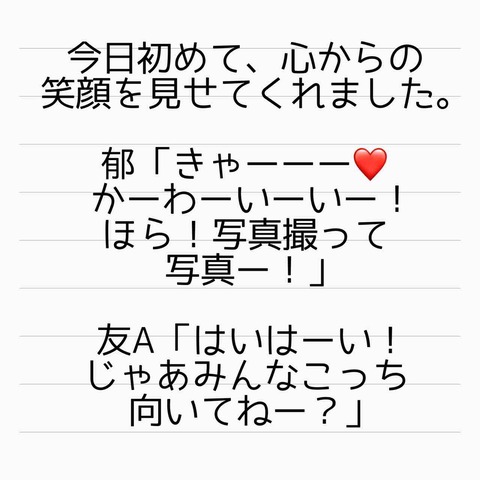 今日初めて、心からの
笑顔を見せてくれました。
郁「きゃーーーー❤️
かーわーいーいー！
ほら！写真撮って
写真ー！」
友A「はいはーい！
じゃあみんなこっち
向いてねー？」